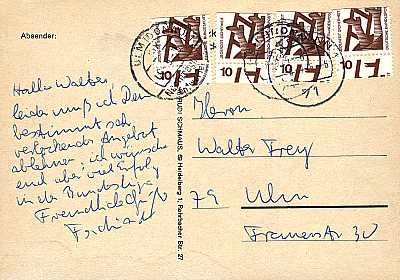 Absender:
Hallo Walter
leider muß ich Dein
bestimmt sehr
verlockendes Angebot
ablehnen; ich wünsche
euch aber viel Erfolg
in der Bundesliga
Freundliche Grüße
RUDI SCHMAUS, 69 Heidelberg 1, Rohrbacher Str. 27
Herrn
Walter Frey
79 Ulm
10
10
10
10